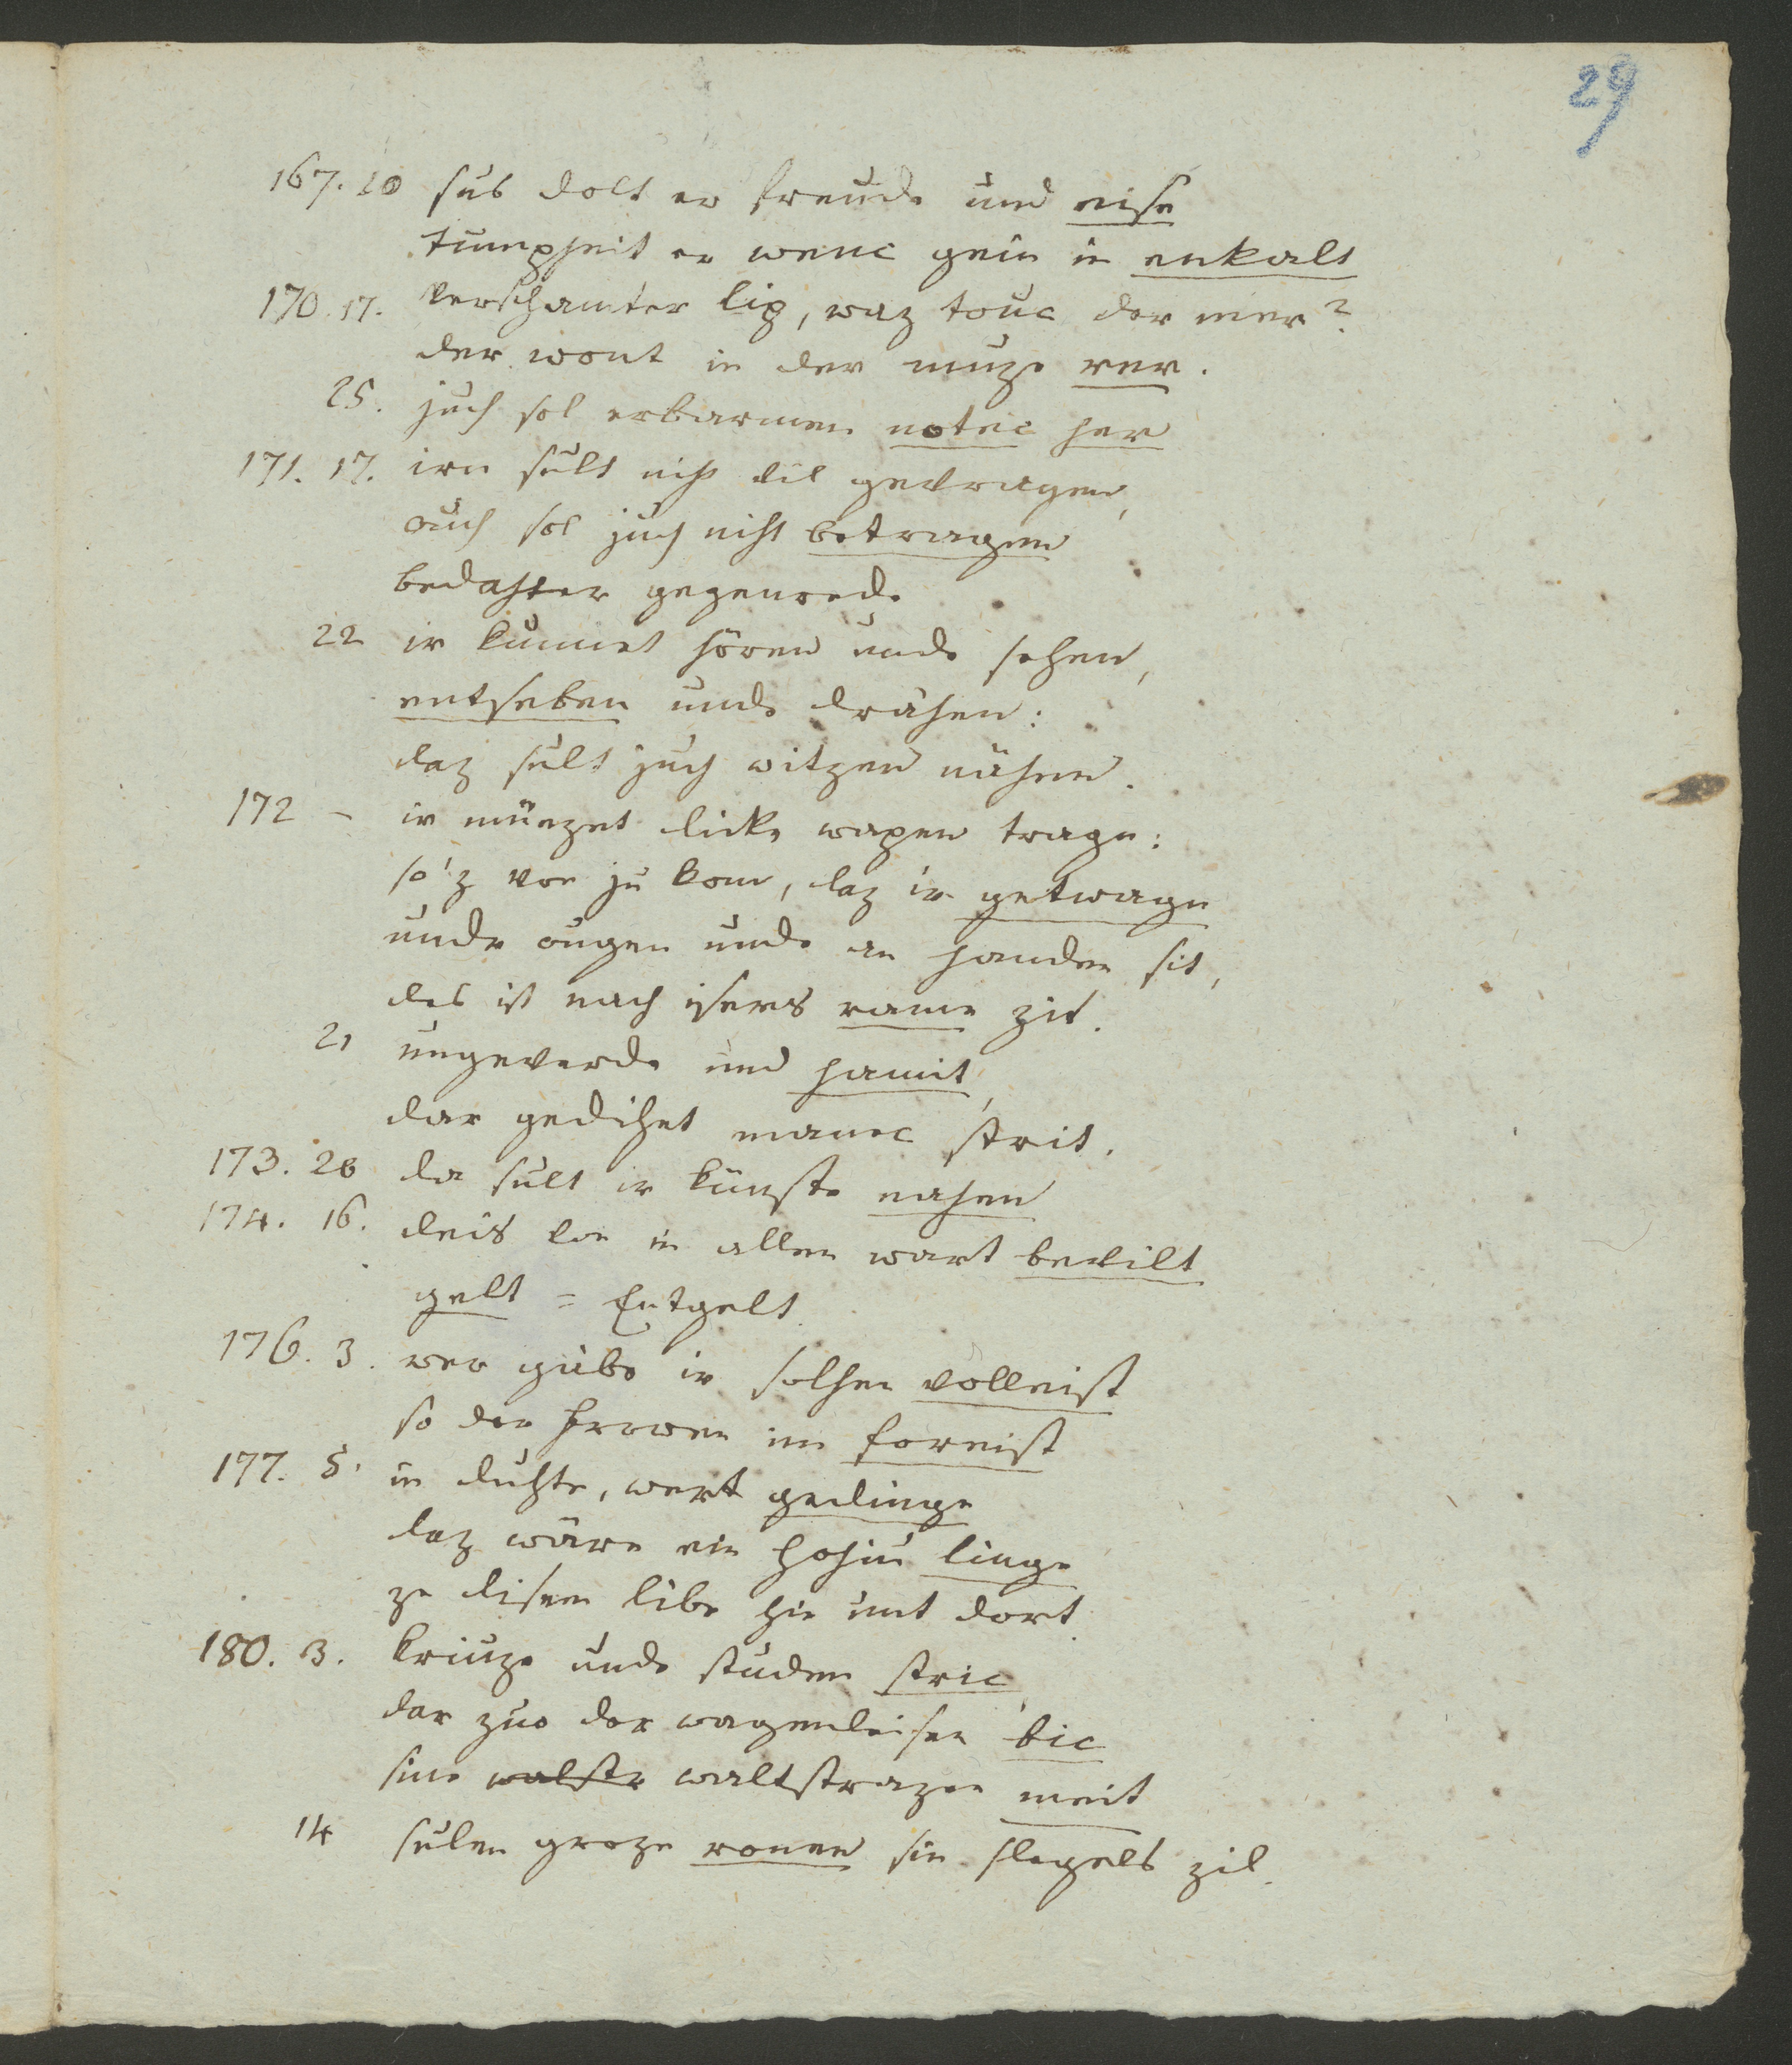 29
167. 10 sus dolt er freude und eise
tumpheit er wenc gein in enkalt
170. 17. verschamter lip, waz touc der mer?
der wont in der muze rer.
25. juch sol erbarmen notec her
171. 17. irn sult niht vil gevragen,
ouch sol juch niht betragen
bedahter gegenrede
22 ir kunnet hören unde sehen,
entseben unde drähen:
daz sult juch witzen nähen.
172 – ir müezet dicke wapen trage:
so'z von ju kom, daz ir getwage
unde ougen unde an handen sit,
des ist nach isers rame zit.
21 ungeverde und hamit,
dar gedihet manec strit.
173. 20 da sult ir künste nahen
174. 16. deis von in allen wart bevilt
gelt = Entgelt.
176. 3. wer gäbe ir solhen volleist
so der frowen im foreist
177. 5. in duhte, wert gedinge
daz wäre ein hohiu linge
ze disem libe hie unt dort.
180. 3. kriuze unde studen stric,
dar zuo der wagenleisen bic
sine walstr waltstrazen meit
14 sulen groze ronen sin slegels zil.